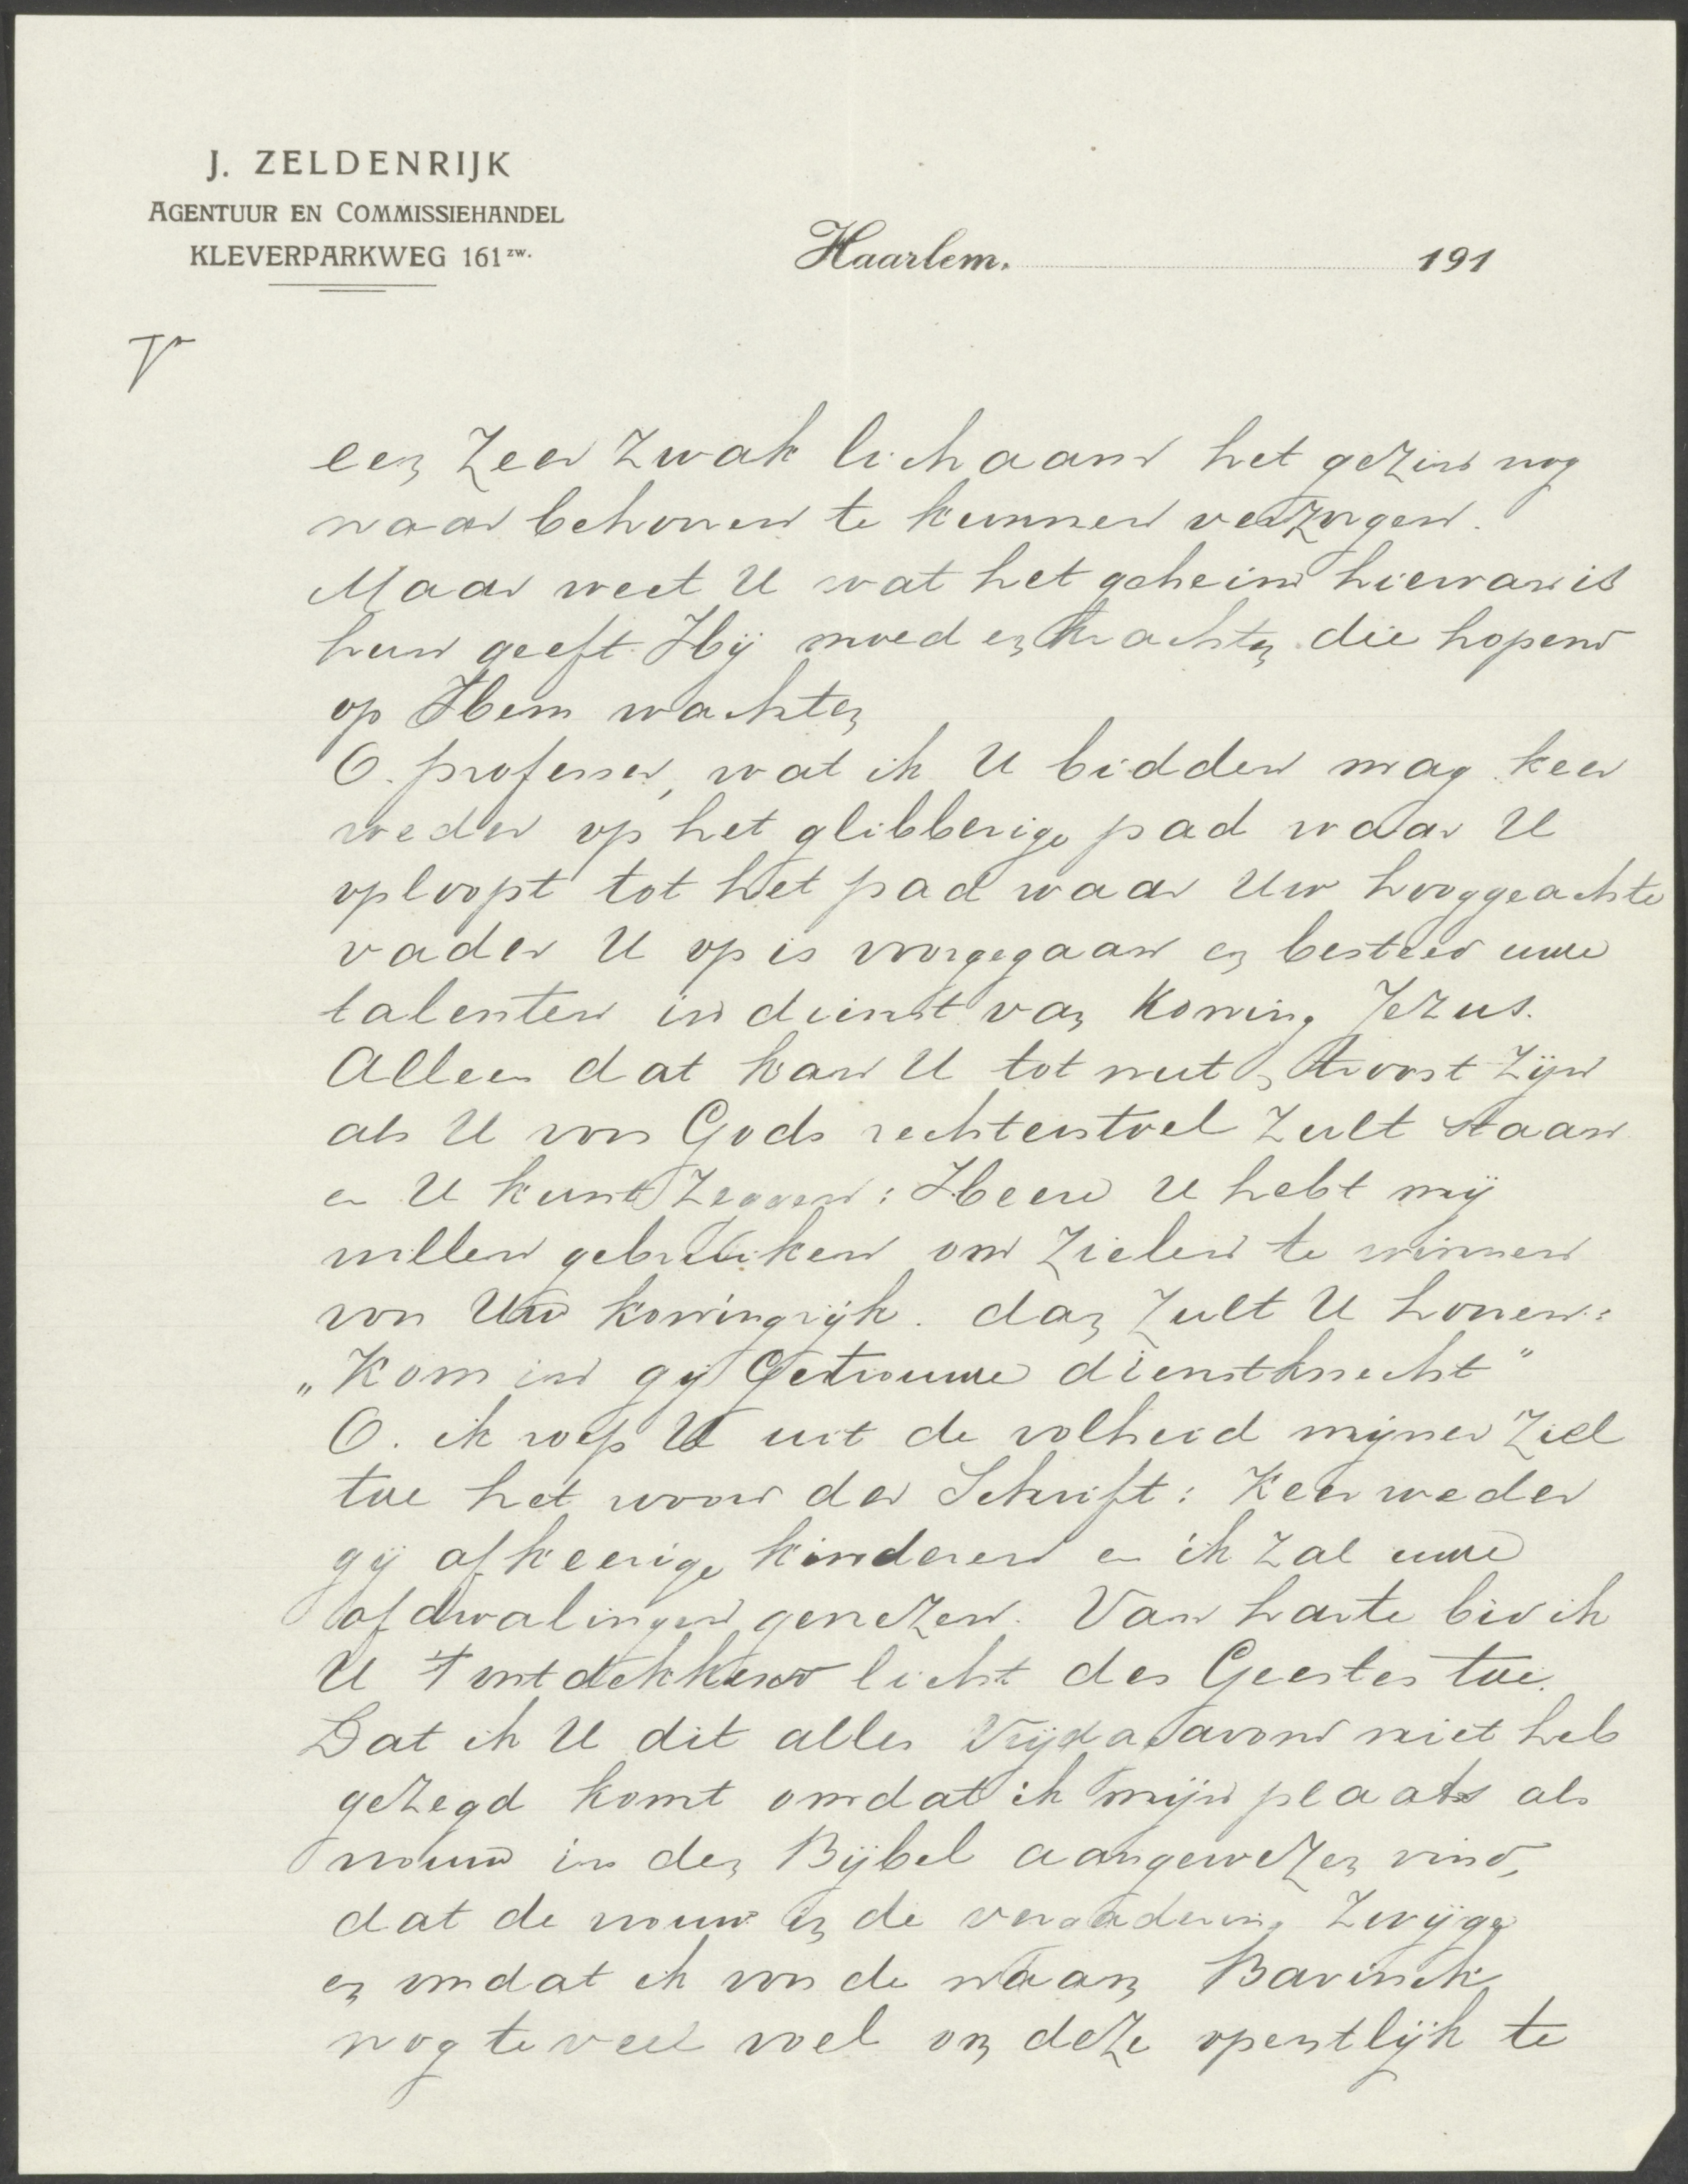 J. ZELDENRIJK
AGENTUUR EN COMMISSIEHANDEL
KLEVERPARKWEG 161 zw.
Haarlem. 191
een zeer zwak lichaam het gezin nog
naar behooren te kunnen verzorgen.
Maar weet U wat het geheim hiervan is
hun geeft Hij moed en krachten die hopend
op Hem wachten
O. professor, wat ik U bidden mag keer
weder op het glibberige pad waar U
oploopt tot het pad waar Uw hooggeachte
vader U op is voorgegaan en besteed uwe
talenten in dienst van Koning Jezus.
Alleen dat kan U tot nut en troost zijn
als U voor Gods rechterstoel zult staan
en U kunt zeggen: Heere U hebt mij
willen gebruiken om zielen te winnen
voor Uw koningrijk. dan zult U hooren:
„Kom in gij Getrouwe dienstknecht"
O. ik roep U uit de volheid mijner ziel
toe het woord der Schrift: Keer weder
gij afkeerige kinderen en ik zal uwe
afdwalingen genezen. Van harte bid ik
U 't ontdekkend licht des Geestes toe.
Dat ik U dit alles Vrijdagavond niet heb
gezegd komt omdat ik mijn plaats als
vrouw in den Bijbel aangewezen vind,
dat de vrouw in de vergadering zwijge
en omdat ik voor de naam Bavinck
nog te veel voel om deze openlijk te